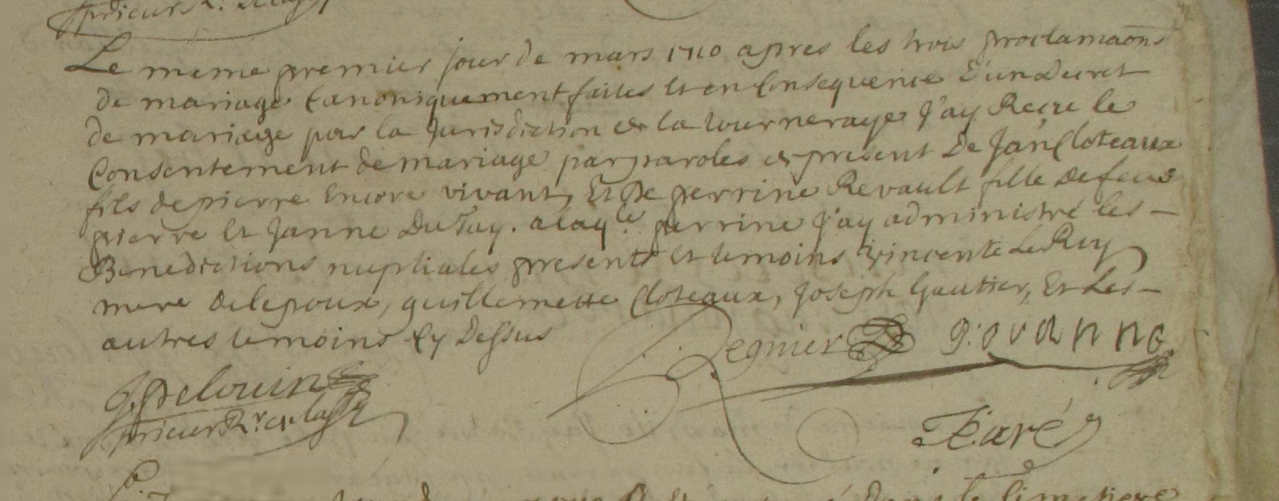 prieur
Le meme premier jour de mars 1710 apres les trois proclamaons
de mariage Canoniquement faites Et en Consequence d'un decret
de mariage par la Jurisdiction de la tourneraye J'ay Reçeu le
Consentement de mariage par paroles de present De Jan Cloteaux
fils de pierre Encore vivant, Et De perrine Revault fille de feus
pierre Et Janne Du Fay. a laq.le perrine j'ay administré les
Benedictions nuptiales presents Et temoins vincente Le Roy
mere de lepoux, guillemette Cloteaux, Joseph Gautier, Et Les
autres temoins Cy Dessus
Regnier g. ovanne
J. Delouin
prieur R.r
Faré